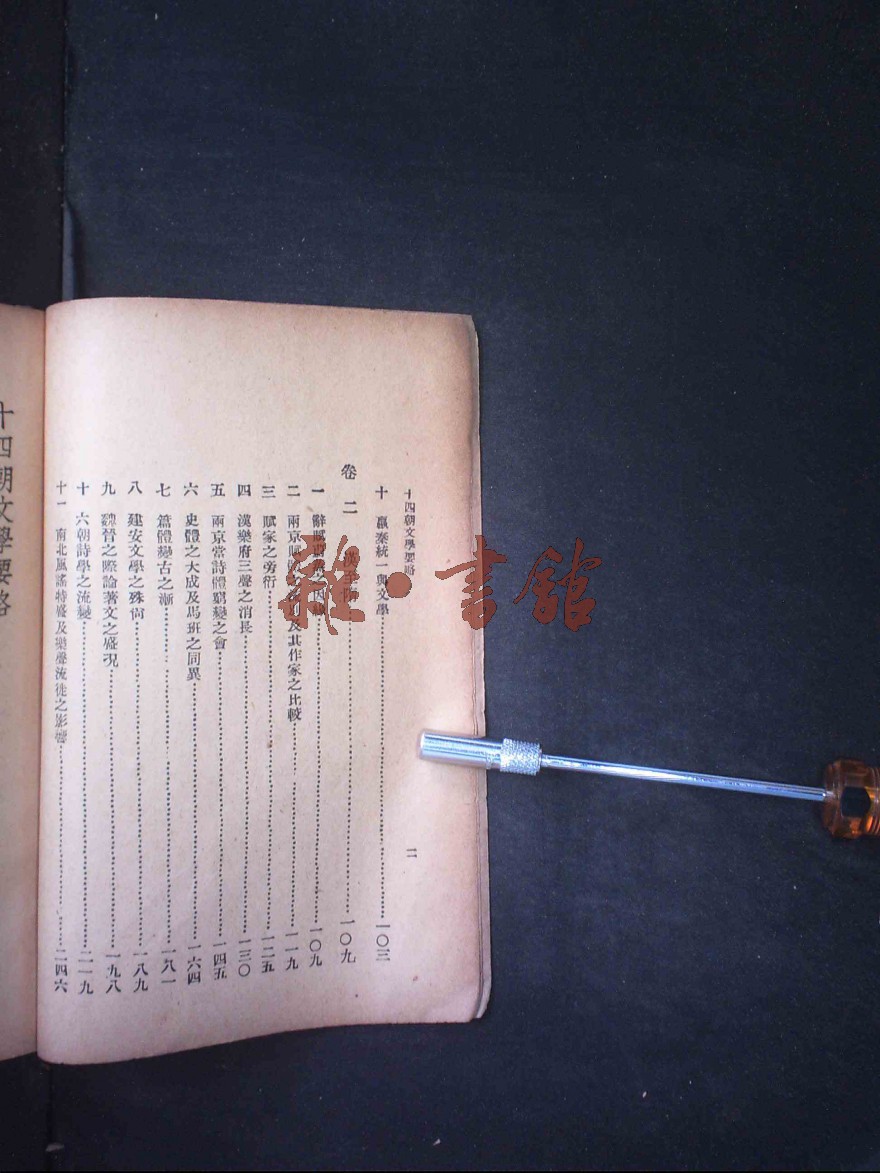 十四朝文學要略
二
十 嬴秦統一與文學 一〇三
卷二 漢至隋 一〇九
一 辭賦 因 一〇九
二 兩京賦 及其作家之比較 一一九
三 賦家之旁衍 一二五
四 漢樂府三聲之消長 一三〇
五 兩京當詩體窮變之會 一四五
六 史體之大成及馬班之同異 一六四
七 篇體變古之漸 一八一
八 建安文學之殊尚 一八九
九 魏晉之際論著文之盛況 一九八
十 六朝詩學之流變 二一九
十一 南北風謠特盛及樂聲流徙之影響 二四六
十四朝文學要略
雜·書館